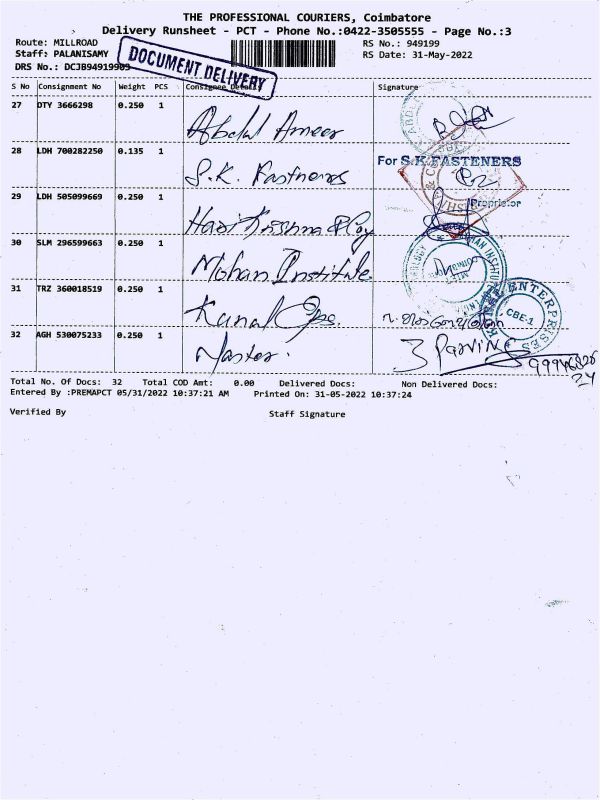 THE PROFESSIONAL COURIERS, Coimbatore
Delivery Runsheet - PCT - Phone No.:0422-3505555 - Page No.:3
Route: MILLROAD
RS No.: 949199
Staff: PALANISAMY
RS Date: 31-May-2022
DRS No.: DCJB94919903
DOCUMENT DELIVERY
S No Consignment No Weight PCS Consignee Details Signature
27 DTY 3666298 0.250 1 Abdul Ameer
28 LDH 700282250 0.135 1 S.K. Fastners
For S.K.FASTENERS
Proprietor
29 LDH 505099669 0.250 1 Hari Krishna & Coy
30 SLM 296599663 0.250 1 Mohan Institute
31 TRZ 360018519 0.250 1 Kunal
ENTERPRISES
CBE-1
32 AGH 530075233 0.250 1 Master.
Total No. Of Docs: 32 Total COD Amt: 0.00 Delivered Docs: Non Delivered Docs:
Entered By :PREMAPCT 05/31/2022 10:37:21 AM Printed On: 31-05-2022 10:37:24
Verified By Staff Signature